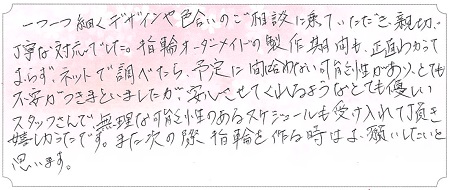 一つ一つ細くデザインや色合いのご相談に乗っていただき、親切、
丁寧な対応でした。指輪オーダーメイドの製作期間も、正直わかって
おらず、ネットで調べたら、予定に間に合わない可能性があり、とても
不安がつきまといましたが、安心させてくれるようなとても優しい
スタッフさんで、無理な可能性のあるスケジュールも受け入れて頂き
嬉しかったです。また次の際、指輪を作る時はお願いしたいと
思います。